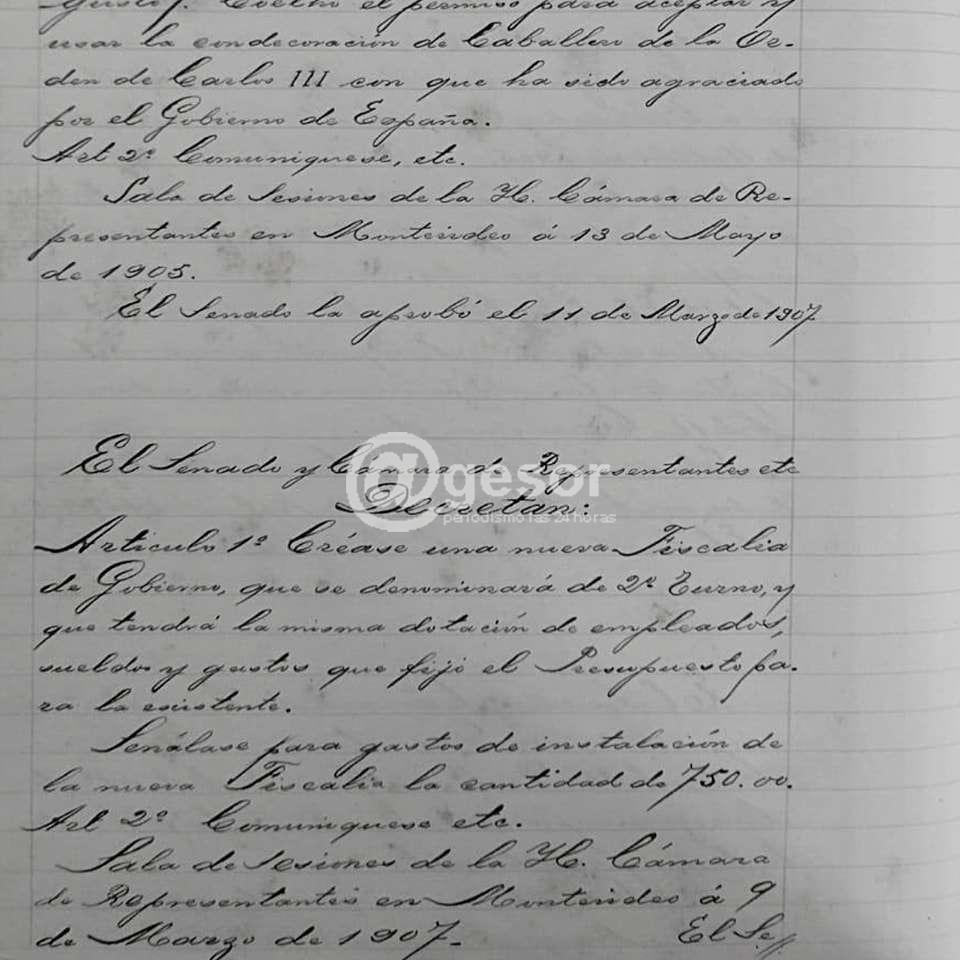 Gusto J. Coelho el permiso para aceptar y
usar la condecoración de Caballero de la Or-
den de Carlos III con que ha sido agraciado
por el Gobierno de España.
Art 2º Comuniquese, etc.
Sala de Sesiones de la H. Cámara de Re-
presentantes en Montevideo á 13 de Mayo
de 1905.
El Senado la aprobó el 11 de Marzo de 1907
El Senado y Cámara de Representantes etc
Decretan:
@gesor
periodismo las 24 horas
Articulo 1º Créase una nueva Fiscalia
de Gobierno, que se denominará de 2º Turno, y
que tendrá la misma dotación de empleados,
sueldos y gastos que fijó el Presupuesto pa-
ra la existente.
Senálase para gastos de instalación de
la nueva Fiscalia la cantidad de 750.00.
Art 2º Comuniquese etc.
Sala de Sesiones de la H. Cámara
de Representantes en Montevideo á 9
de Marzo de 1907.- El Se//